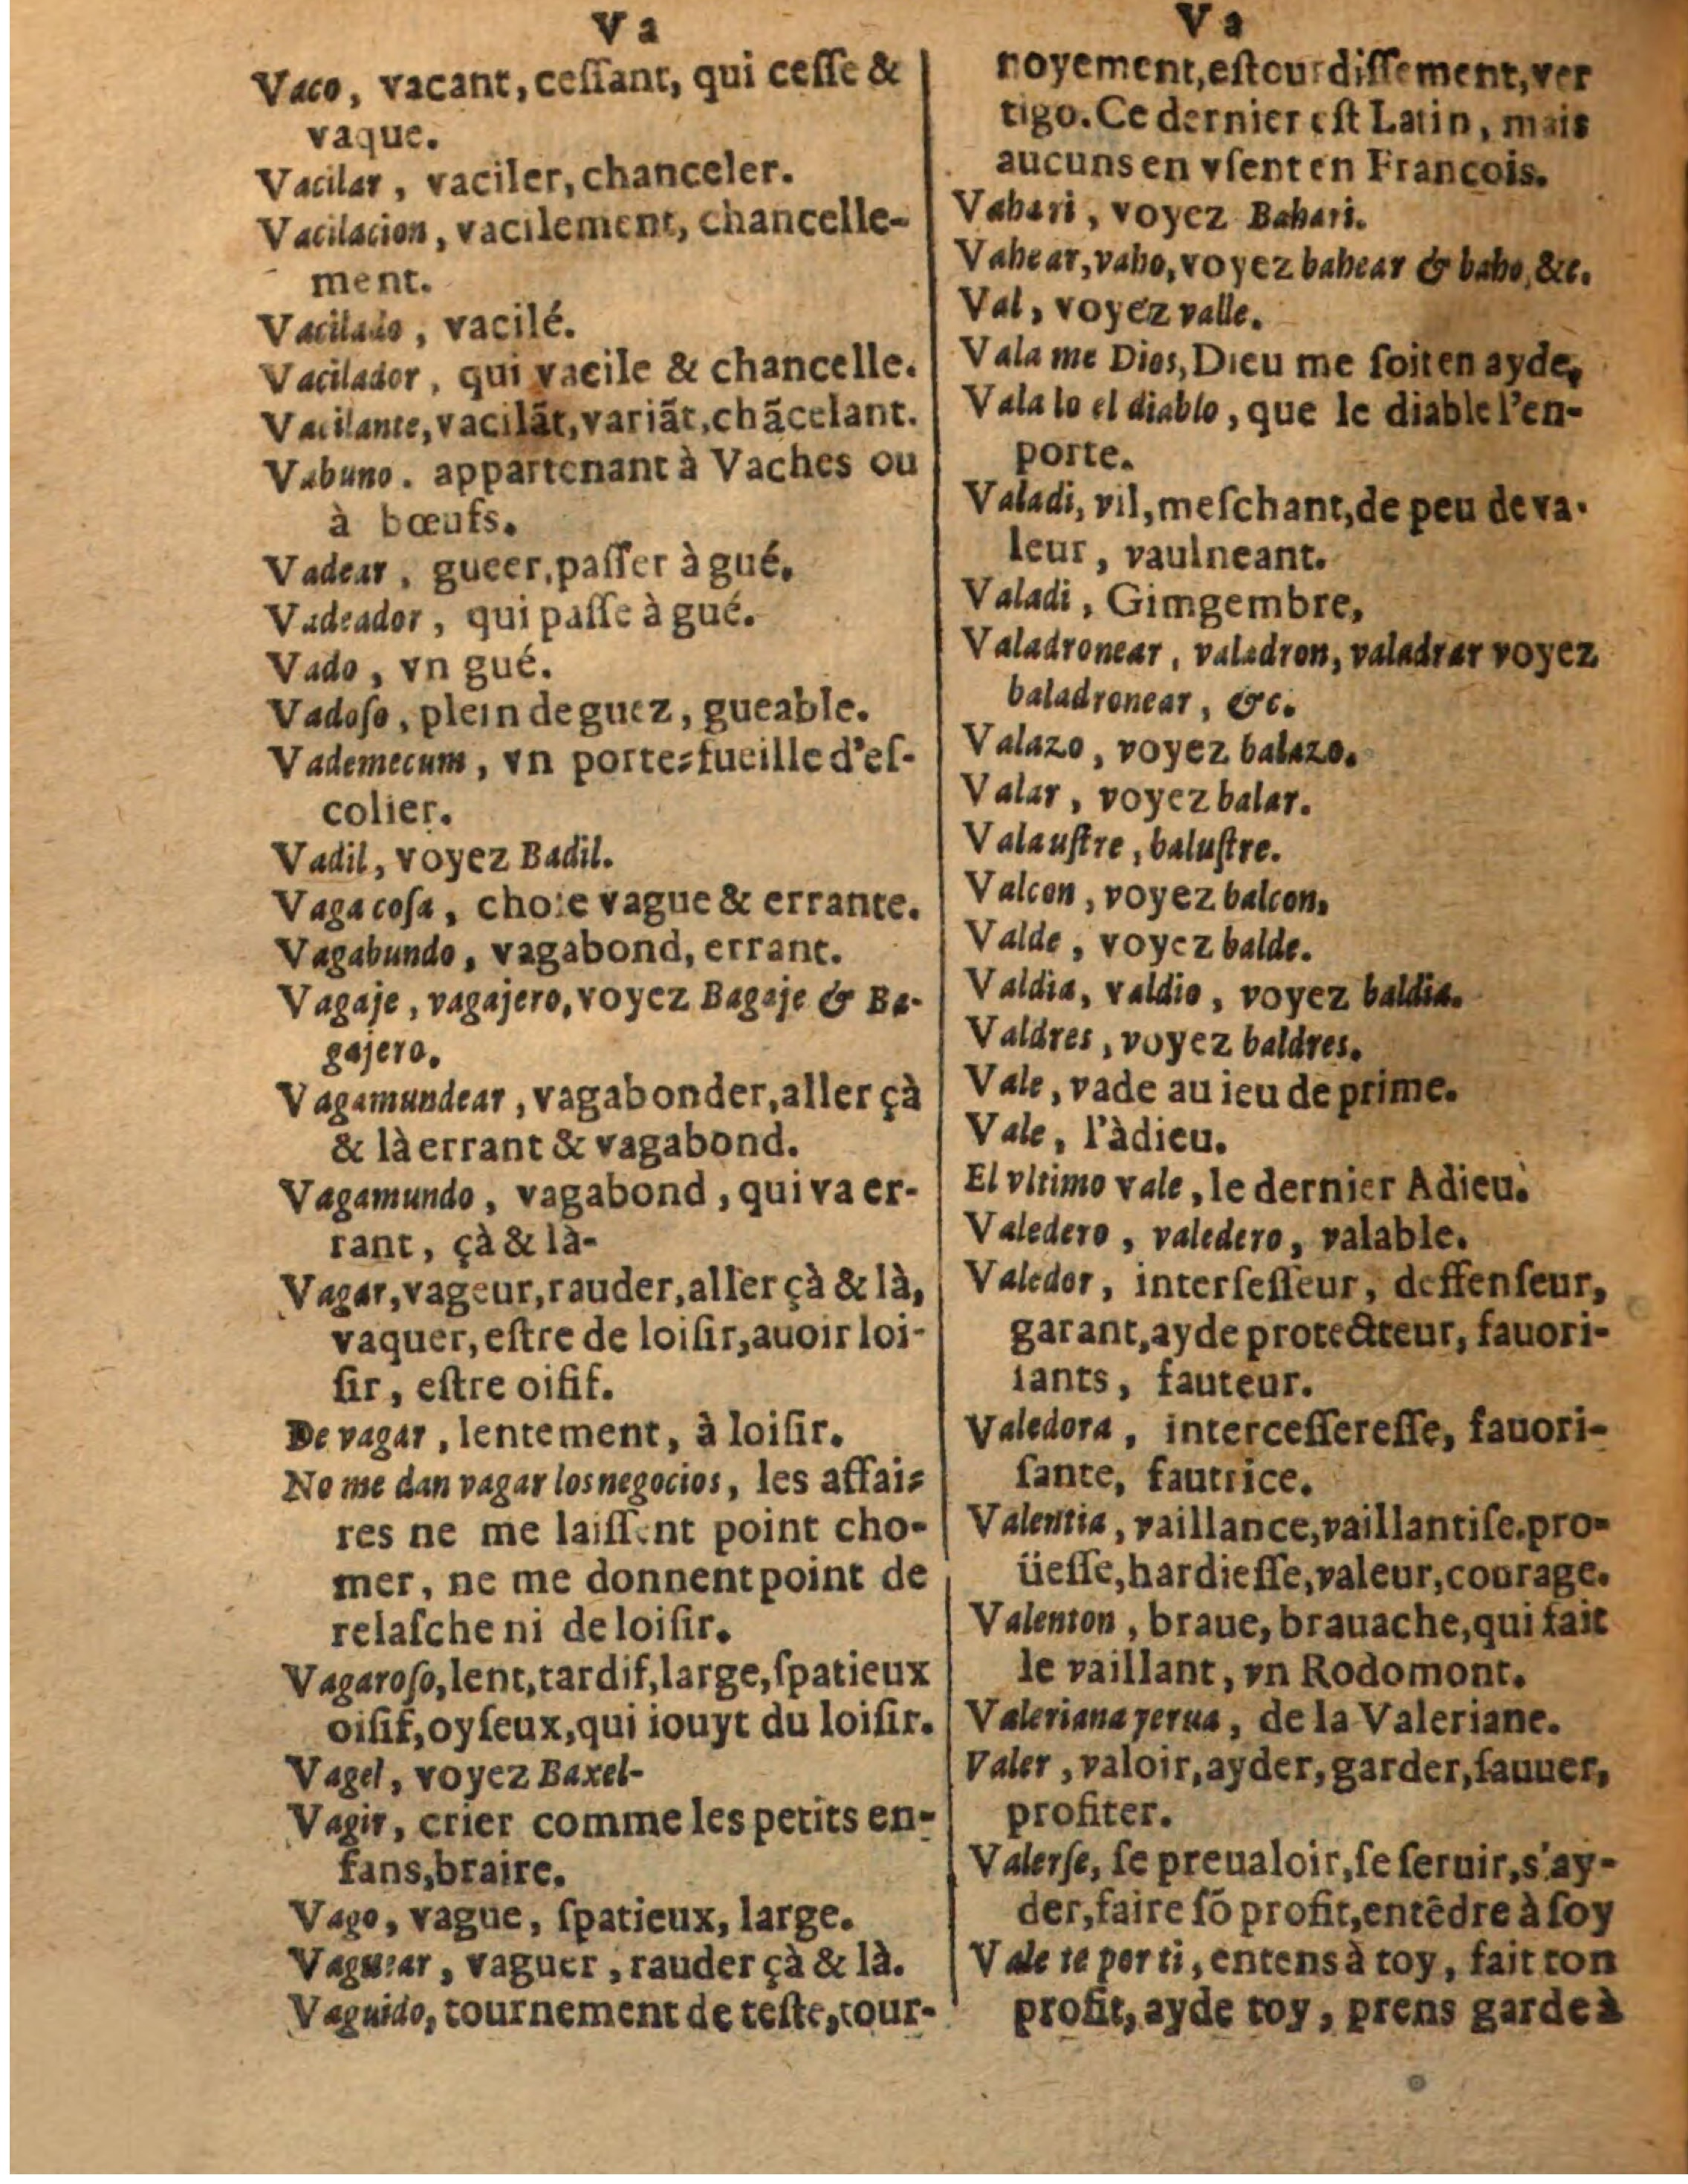 Va
Vaco, vacant, ceſſant, qui ceſſe &
vaque.
Vacilar, vaciler, chanceler.
Vacilacion, vacilement, chancelle-
ment.
Vacilado, vacilé.
Vacilador, qui vacile & chancelle.
Vacilante, vacilãt, variãt, chãcelant.
Vabuno. appartenant à Vaches ou
à bœufs.
Vadear, gueer, paſſer à gué.
Vadeador, qui paſſe à gué.
Vado, vn gué.
Vadoſo, plein de guez, gueable.
Vademecum, vn porte-fueille d'eſ-
colier.
Vadil, voyez Badil.
Vaga coſa, choſe vague & errante.
Vagabundo, vagabond, errant.
Vagaje, vagajero, voyez Bagaje & Ba-
gajero.
Vagamundear, vagabonder, aller çà
& là errant & vagabond.
Vagamundo, vagabond, qui va er-
rant, çà & là-
Vagar, vageur, rauder, aller çà & là,
vaquer, eſtre de loiſir, auoir loi-
ſir, eſtre oiſif.
De vagar, lentement, à loiſir.
No me dan vagar los negocios, les affai-
res ne me laiſſent point cho-
mer, ne me donnent point de
relaſche ni de loiſir.
Vagaroſo, lent, tardif, large, ſpatieux
oiſif, oyſeux, qui iouyt du loiſir.
Vagel, voyez Baxel-
Vagir, crier comme les petits en-
fans, braire.
Vago, vague, ſpatieux, large.
Vaguear, vaguer, rauder çà & là.
Vaguido, tournement de teſte, tour-
Va
noyement, eſtourdiſſement, ver
tigo. Ce dernier eſt Latin, mais
aucuns en vſent en François.
Vahari, voyez Bahari.
Vahear, vaho, voyez bahear & baho, &c.
Val, voyez valle.
Vala me Dios, Dieu me ſoit en ayde,
Vala lo el diablo, que le diable l'en-
porte.
Valadi, vil, meſchant, de peu de va-
leur, vaulneant.
Valadi, Gimgembre,
Valadronear, valadron, valadrar voyez
baladronear, &c.
Valazo, voyez balazo.
Valar, voyez balar.
Valauſtre, baluſtre.
Valcon, voyez balcon,
Valde, voyez balde.
Valdia, valdio, voyez baldia.
Valdres, voyez baldres.
Vale, vade au ieu de prime.
Vale, l'àdieu.
El vltimo vale, le dernier Adieu.
Valedero, valedero, valable.
Valedor, interſeſſeur, deffenſeur,
garant, ayde protecteur, fauori-
ſants, fauteur.
Valedora, interceſſereſſe, fauori-
ſante, fautrice.
Valentia, vaillance, vaillantiſe. pro-
üeſſe, hardieſſe, valeur, courage.
Valenton, braue, brauache, qui fait
le vaillant, vn Rodomont.
Valeriana yerua, de la Valeriane.
Valer, valoir, ayder, garder, ſauuer,
profiter.
Valerſe, ſe preualoir, ſe ſeruir, s'ay-
der, faire ſõ profit, entẽdre à ſoy
Vale te por ti, entens à toy, fait ton
profit, ayde toy, prens garde à